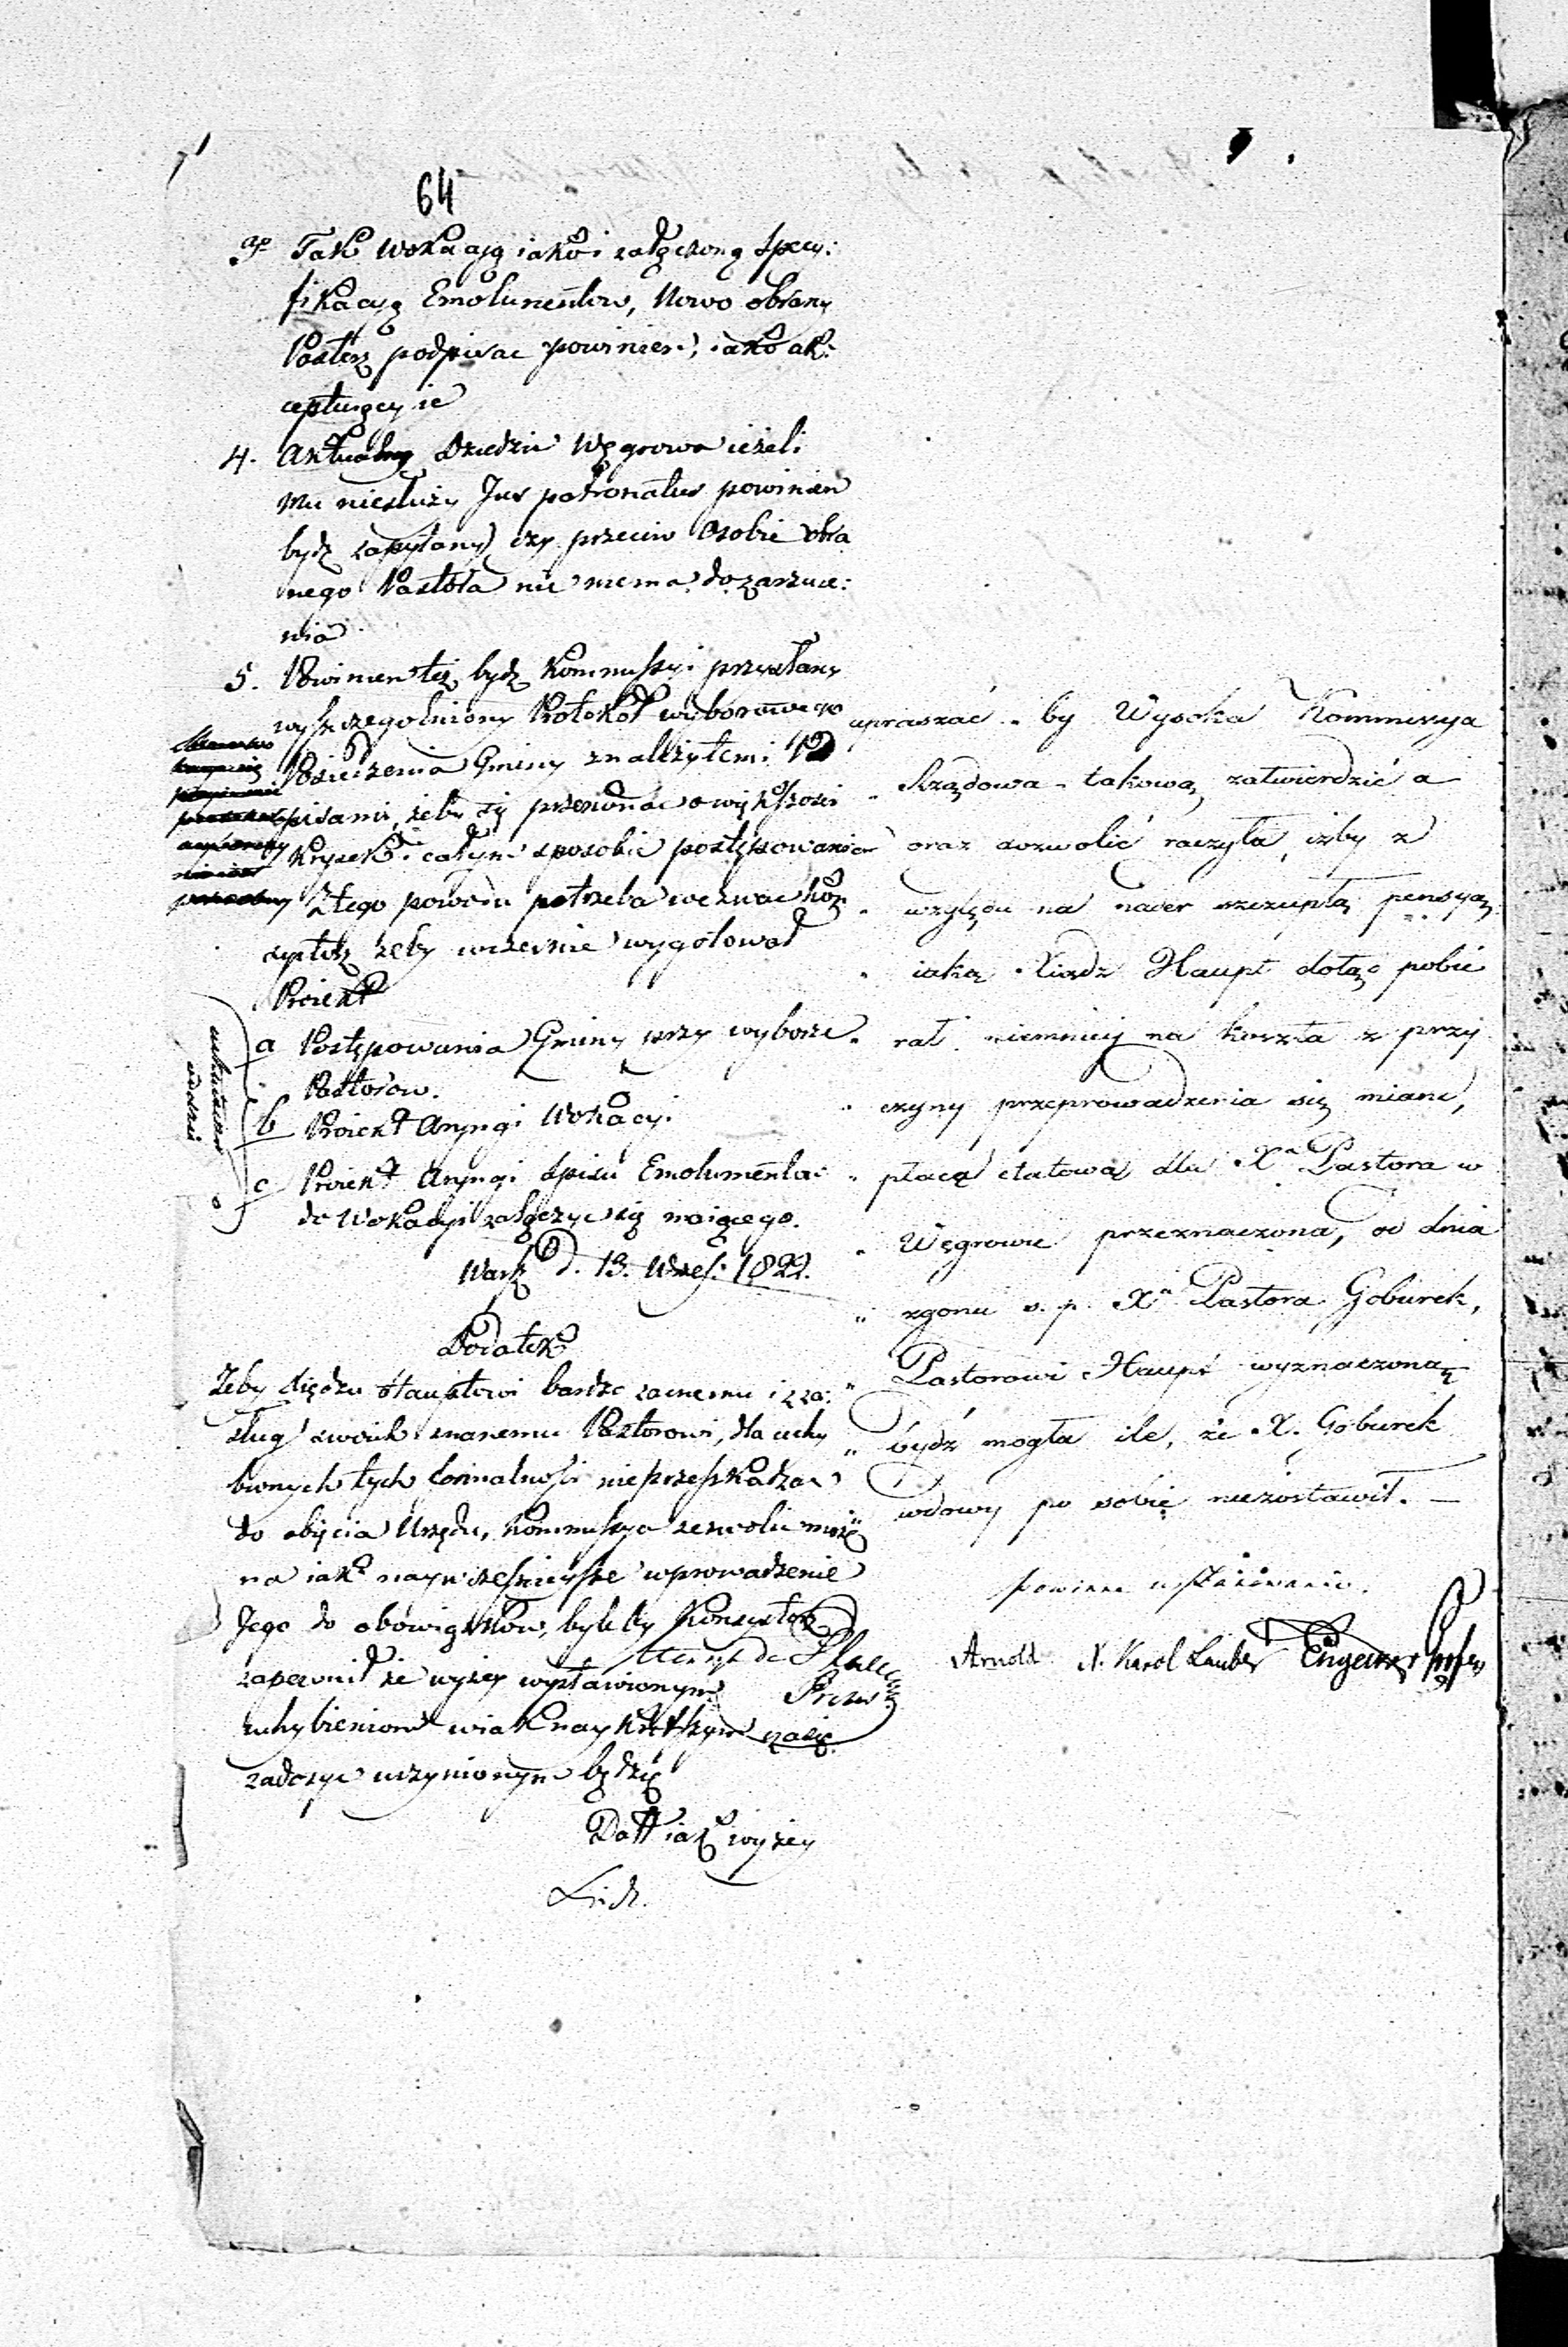 64
3o Tak wokacyą iako i załączoną specy:
fikacyą Emolumentow, Nowo obrany
Pasterz podpisac powinien, iako ak:
ceptuiący ie
4. Aktualny Dziedzic Węgrowa ieżeli
mu niesłuży Jus patronatus powinien
bydz zapytany czy przeciw osobie obra
nego Pastora nic niema do zarzuce:
nia
5. Powinien też bydz Kommissyi przysłany
wyszczegolniony Protokół wyborowego
Posiedzenia Gminy z należytemi Pod
pisami, żeby się przekonać o większości
Kresek i całym sposobie postępowania
Z tego powodu potrzeba wezwac Kon
systorz żeby wcześnie wygotował
Proiekt
a Postępowania Gminy przy wyborze
Pastorow.
b Proiekt Aryngi Wokacyi
c Proiekt Aryngi Spisu Emolumentów
do Wokacyi załączyc się maiącego.
Warsz. d. 13. Wrześ: 1822.
Dodatek
Żeby Xiędzu Hauptowi bardzo zacnemu i z za:
sług swoich znanemu Pastorowi, dla uchy
bionych tych formalności nieprzeszkadzac
do obięcia Urzędu, Kommissya zezwolic może
na iak naywcześnieysze wprowadzenie
Jego do obowiązków, byleby Konsystorz
zapewnił że wyżey wystawionym
uchybieniom w iak naykrótszym czasie
zadosyc uczynionym będzie
Datt iak wyżey
upraszać by Wysoka Kommissya
„ Rządowa takową zatwierdzić a
oraz dozwolić raczyła, iżby z
„ względu na nader szczupłą pensyą
„ iaką Xiądz Haupt dotąd pobie
„ rał niemniey na koszta z przy
„ czyny przeprowadzenia się miane,
„ płaca etatowa dla Xa Pastora w
„ Węgrowie przeznaczona, od dnia
„ zgonu s. p. Xa Pastora Goburek,
„ Pastorowi Haupt wyznaczoną
„ bydź mogła ile, że X. Goburek
„ wdowy po sobie niezostawił. —
powinne uszanowanie.
Arnold X. Karol Lauber